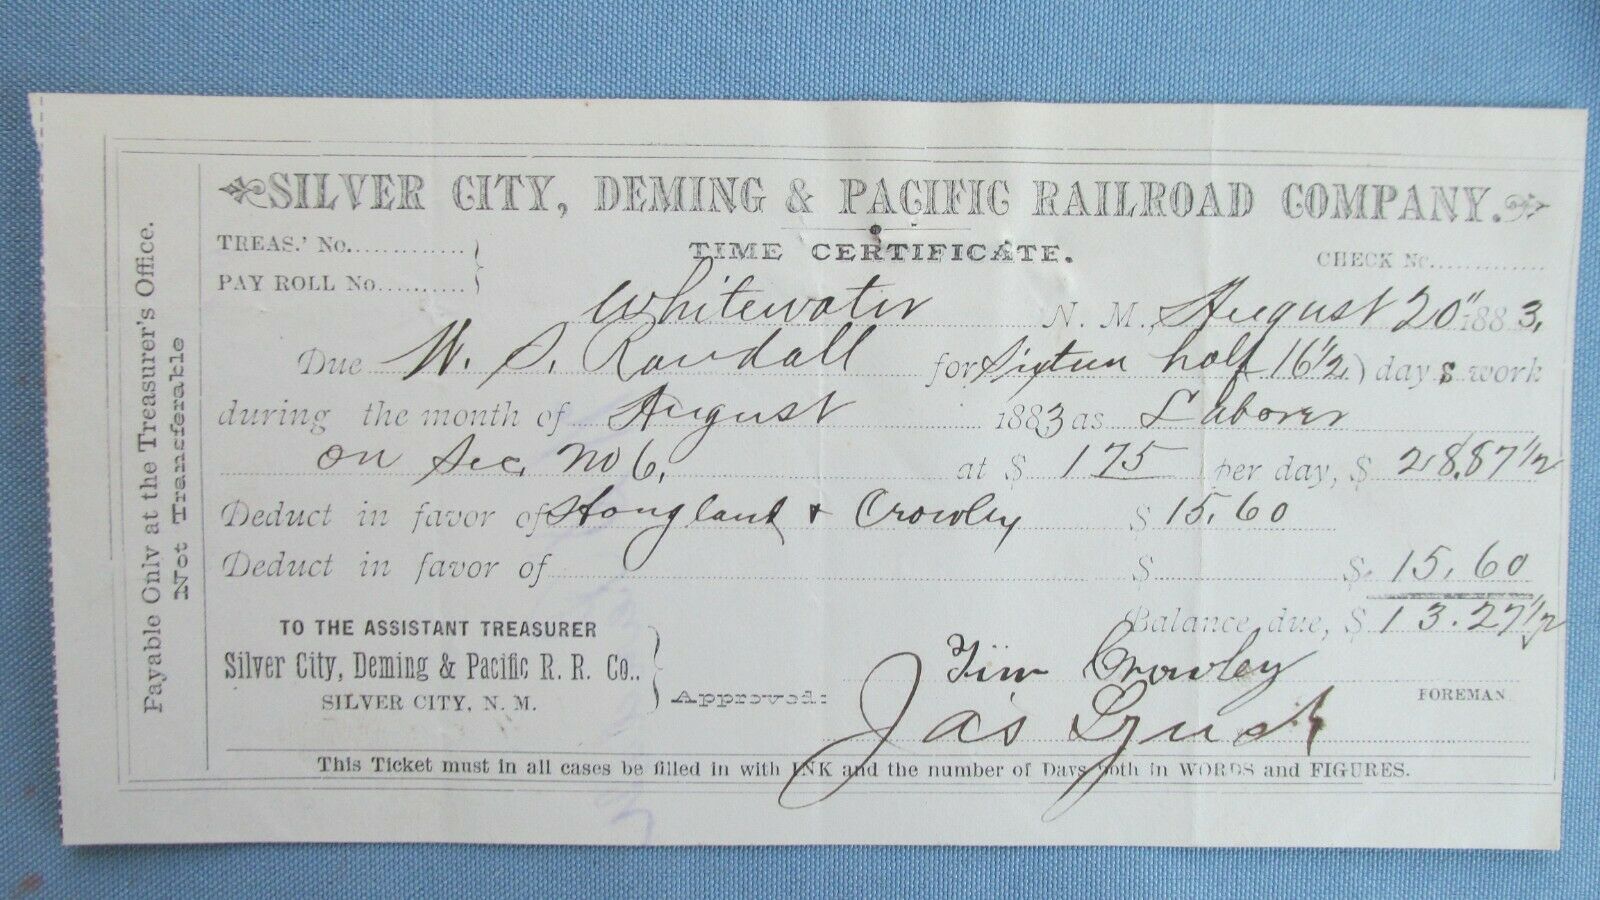 SILVER CITY, DEMING & PACIFIC RAILROAD COMPANY.
TREAS.' No.
TIME CERTIFICATE.
CHECK No.
PAY ROLL No.
Whitewater N. M., August 20" 1883.
Due W. S. Randall for Sixteen half 16 1/2) days work
during the month of August 1883 as Laborer
on Sec. No 6. at $ 1 75 per day, $ 28.87 1/2
Deduct in favor of Hougland & Crowley $ 15.60
Deduct in favor of $ $ 15.60
Balance due, $ 13.27 1/2
TO THE ASSISTANT TREASURER
Silver City, Deming & Pacific R. R. Co..
SILVER CITY, N. M.
Approved:
Tim Crowley
FOREMAN
Jas Lynch
This Ticket must in all cases be filled in with INK and the number of Days both in WORDS and FIGURES.
Payable Only at the Treasurer's Office.
Not Transferable